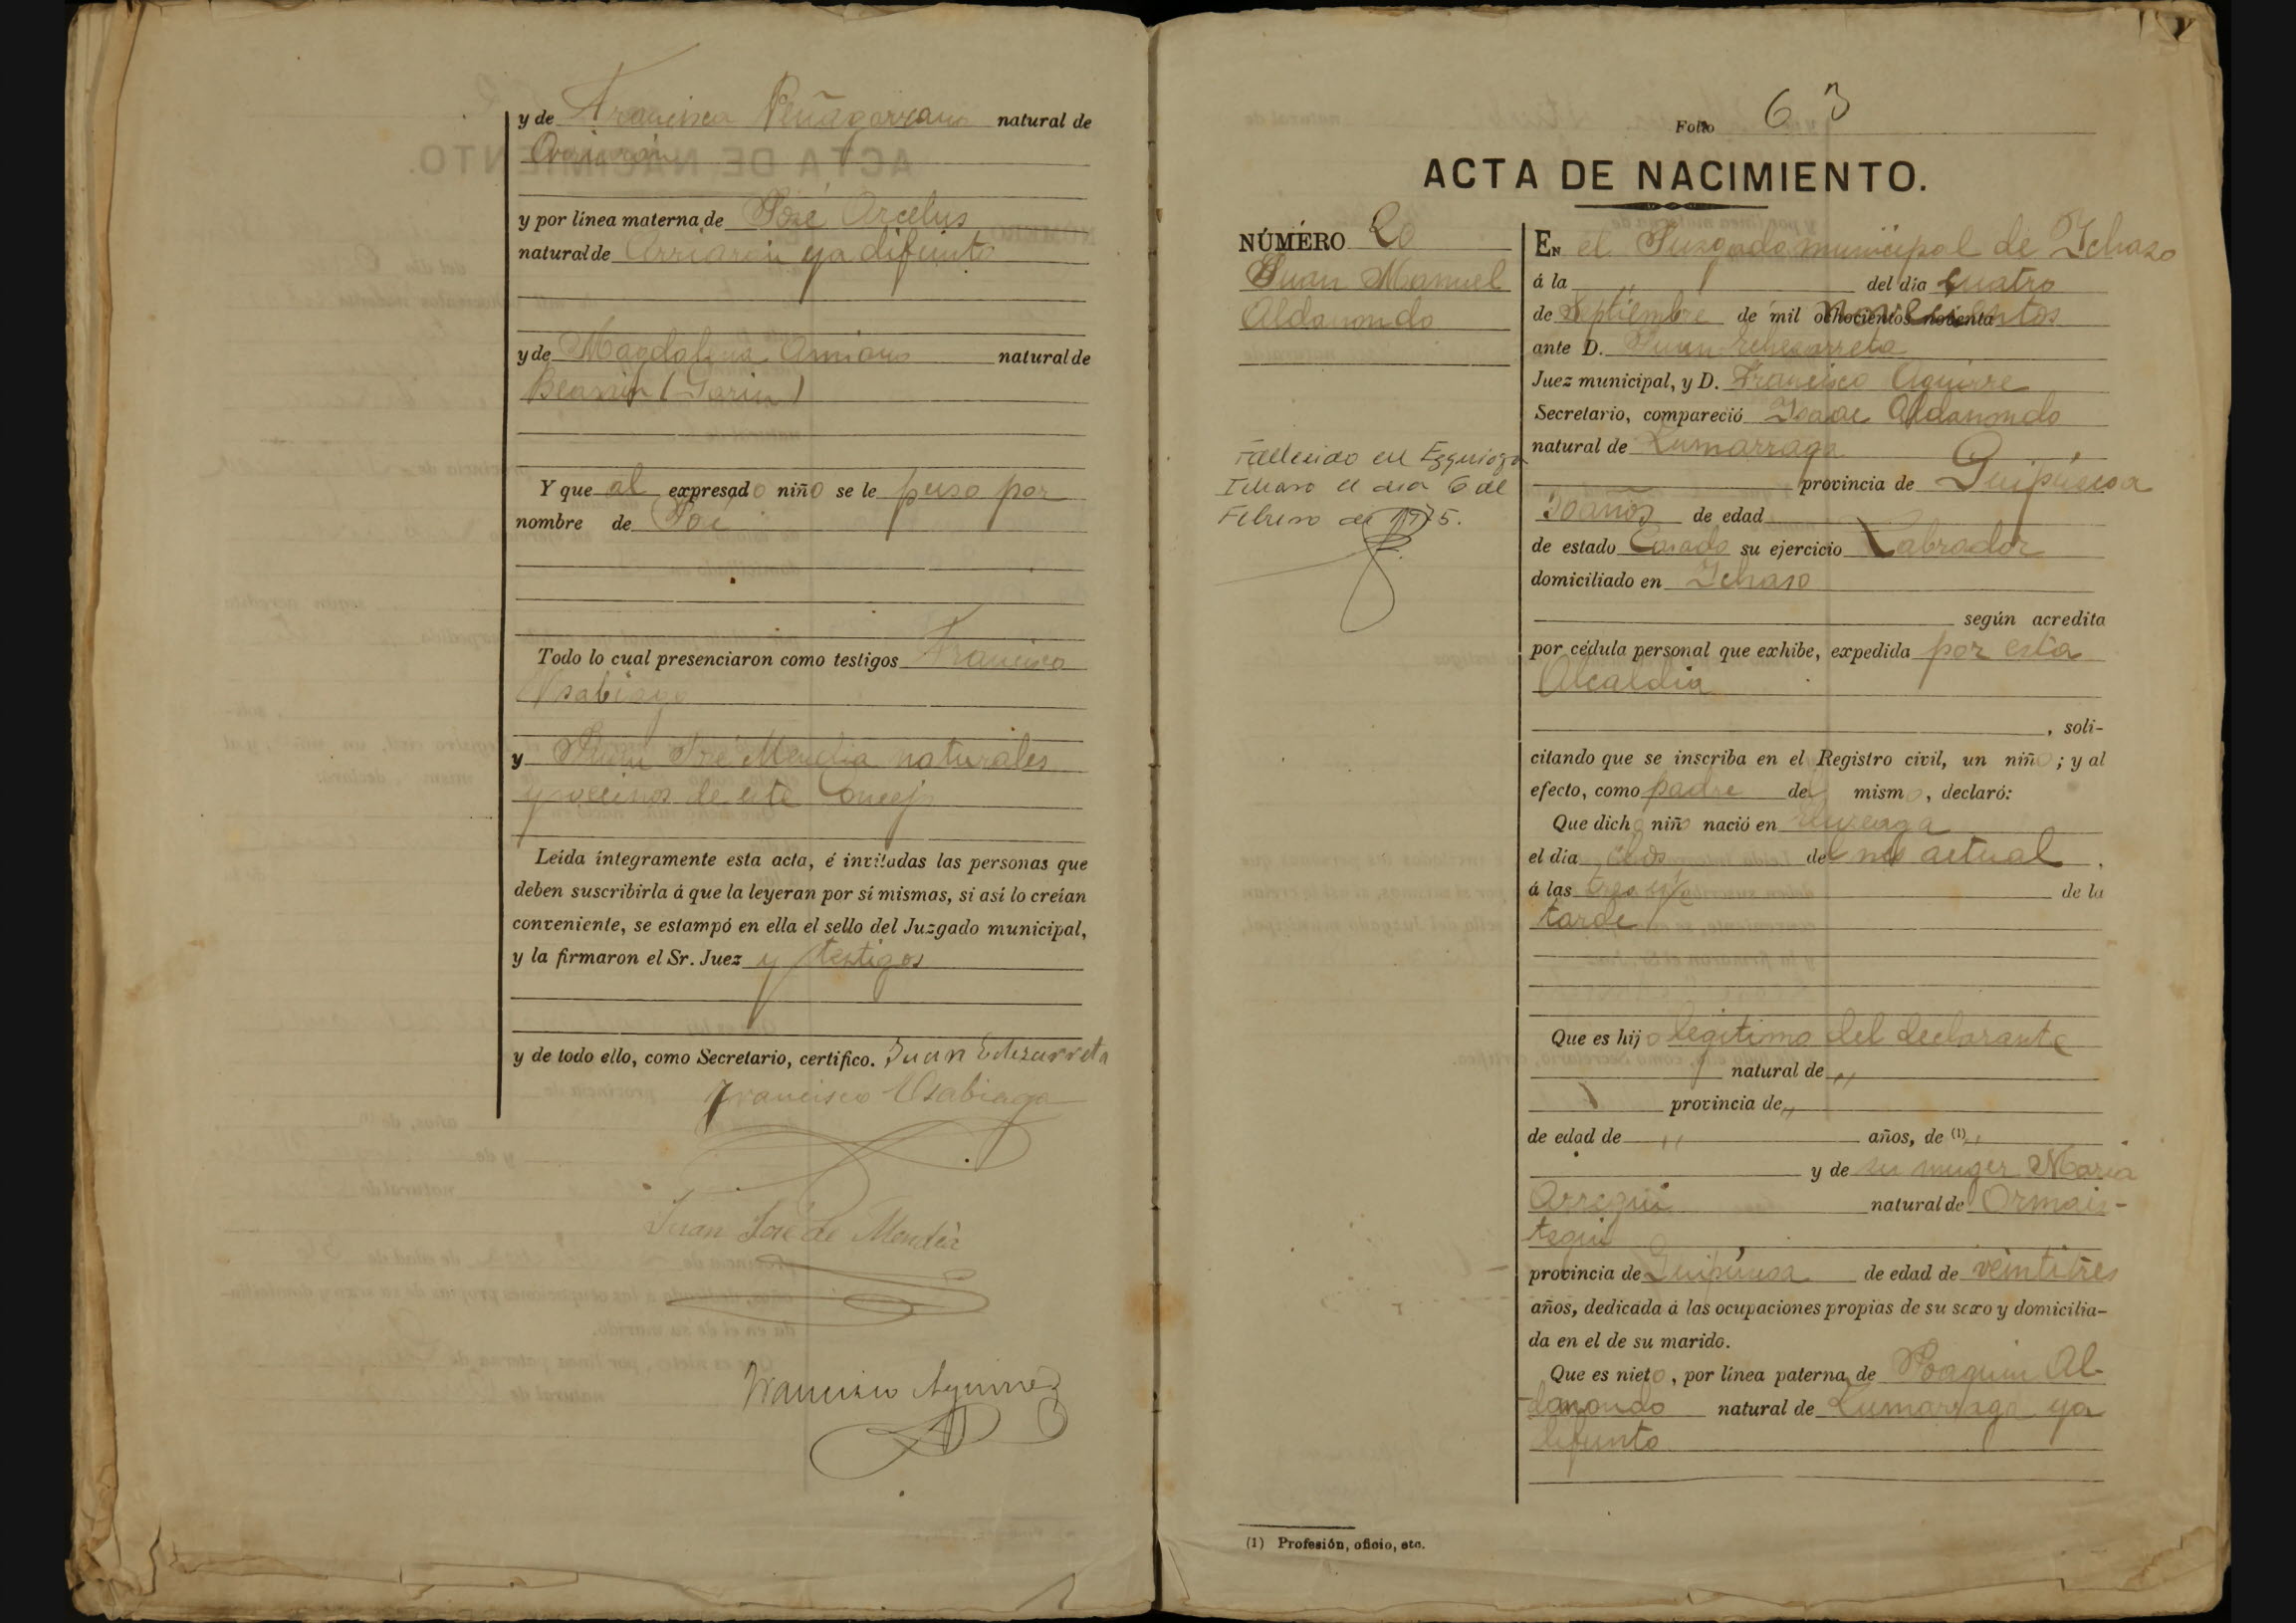 y de Francisca Peñagarrano natural de
Arriarán
y por línea materna de José Arcelus
natural de Arriarán ya difunto
y de Magdalena natural de
Beasain (Garin)
Y que al expresado niño se le puso por
nombre de José
Todo lo cual presenciaron como testigos Francisco
Usabiaga
y Juan José Mendia naturales
y vecinos de este Concejo
Leída íntegramente esta acta, é invitadas las personas que
deben suscribirla á que la leyeran por sí mismas, si así lo creían
conveniente, se estampó en ella el sello del Juzgado municipal,
y la firmaron el Sr. Juez y testigos
y de todo ello, como Secretario, certifico. Juan Echezarreta
Francisco Usabiaga
Juan José de Mendia
Francisco Aguirre
Folio 63
ACTA DE NACIMIENTO.
NÚMERO 20
Juan Manuel
Aldanondo
Fallecido en Ezquioga
Ichaso el dia 6 de
Febrero de 1975.
EN el Juzgado municipal de Ichaso
á la " del día cuatro
de Septiembre de mil novecientos
ante D. Juan Echezarreta
Juez municipal, y D. Francisco Aguirre
Secretario, compareció Isaac Aldanondo
natural de Zumarraga
provincia de Guipúzcoa
30 años de edad
de estado Casado su ejercicio Labrador
domiciliado en Ichaso
según acredita
por cédula personal que exhibe, expedida por esta
Alcaldia
, soli-
citando que se inscriba en el Registro civil, un niño; y al
efecto, como padre del mismo, declaró:
Que dicho niño nació en
el día dos del mes actual.
á las tres de la
tarde
Que es hijo legitimo del declarante
natural de "
provincia de "
de edad de " años, de (1) "
y de su muger Maria
Arregui natural de Ormaiz-
tegui
provincia de Guipúzcoa de edad de veintitres
años, dedicada á las ocupaciones propias de su sexo y domicilia-
da en el de su marido.
Que es nieto, por línea paterna, de Joaquin Al-
danondo natural de Zumarraga ya
difunto
(1) Profesión, oficio, etc.